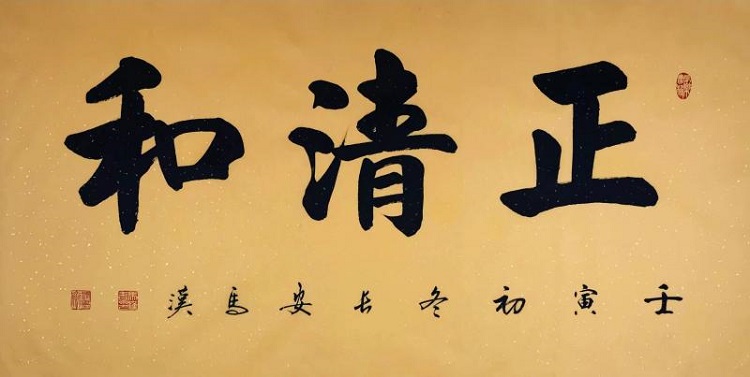 正清和
壬寅初冬长安馬漢